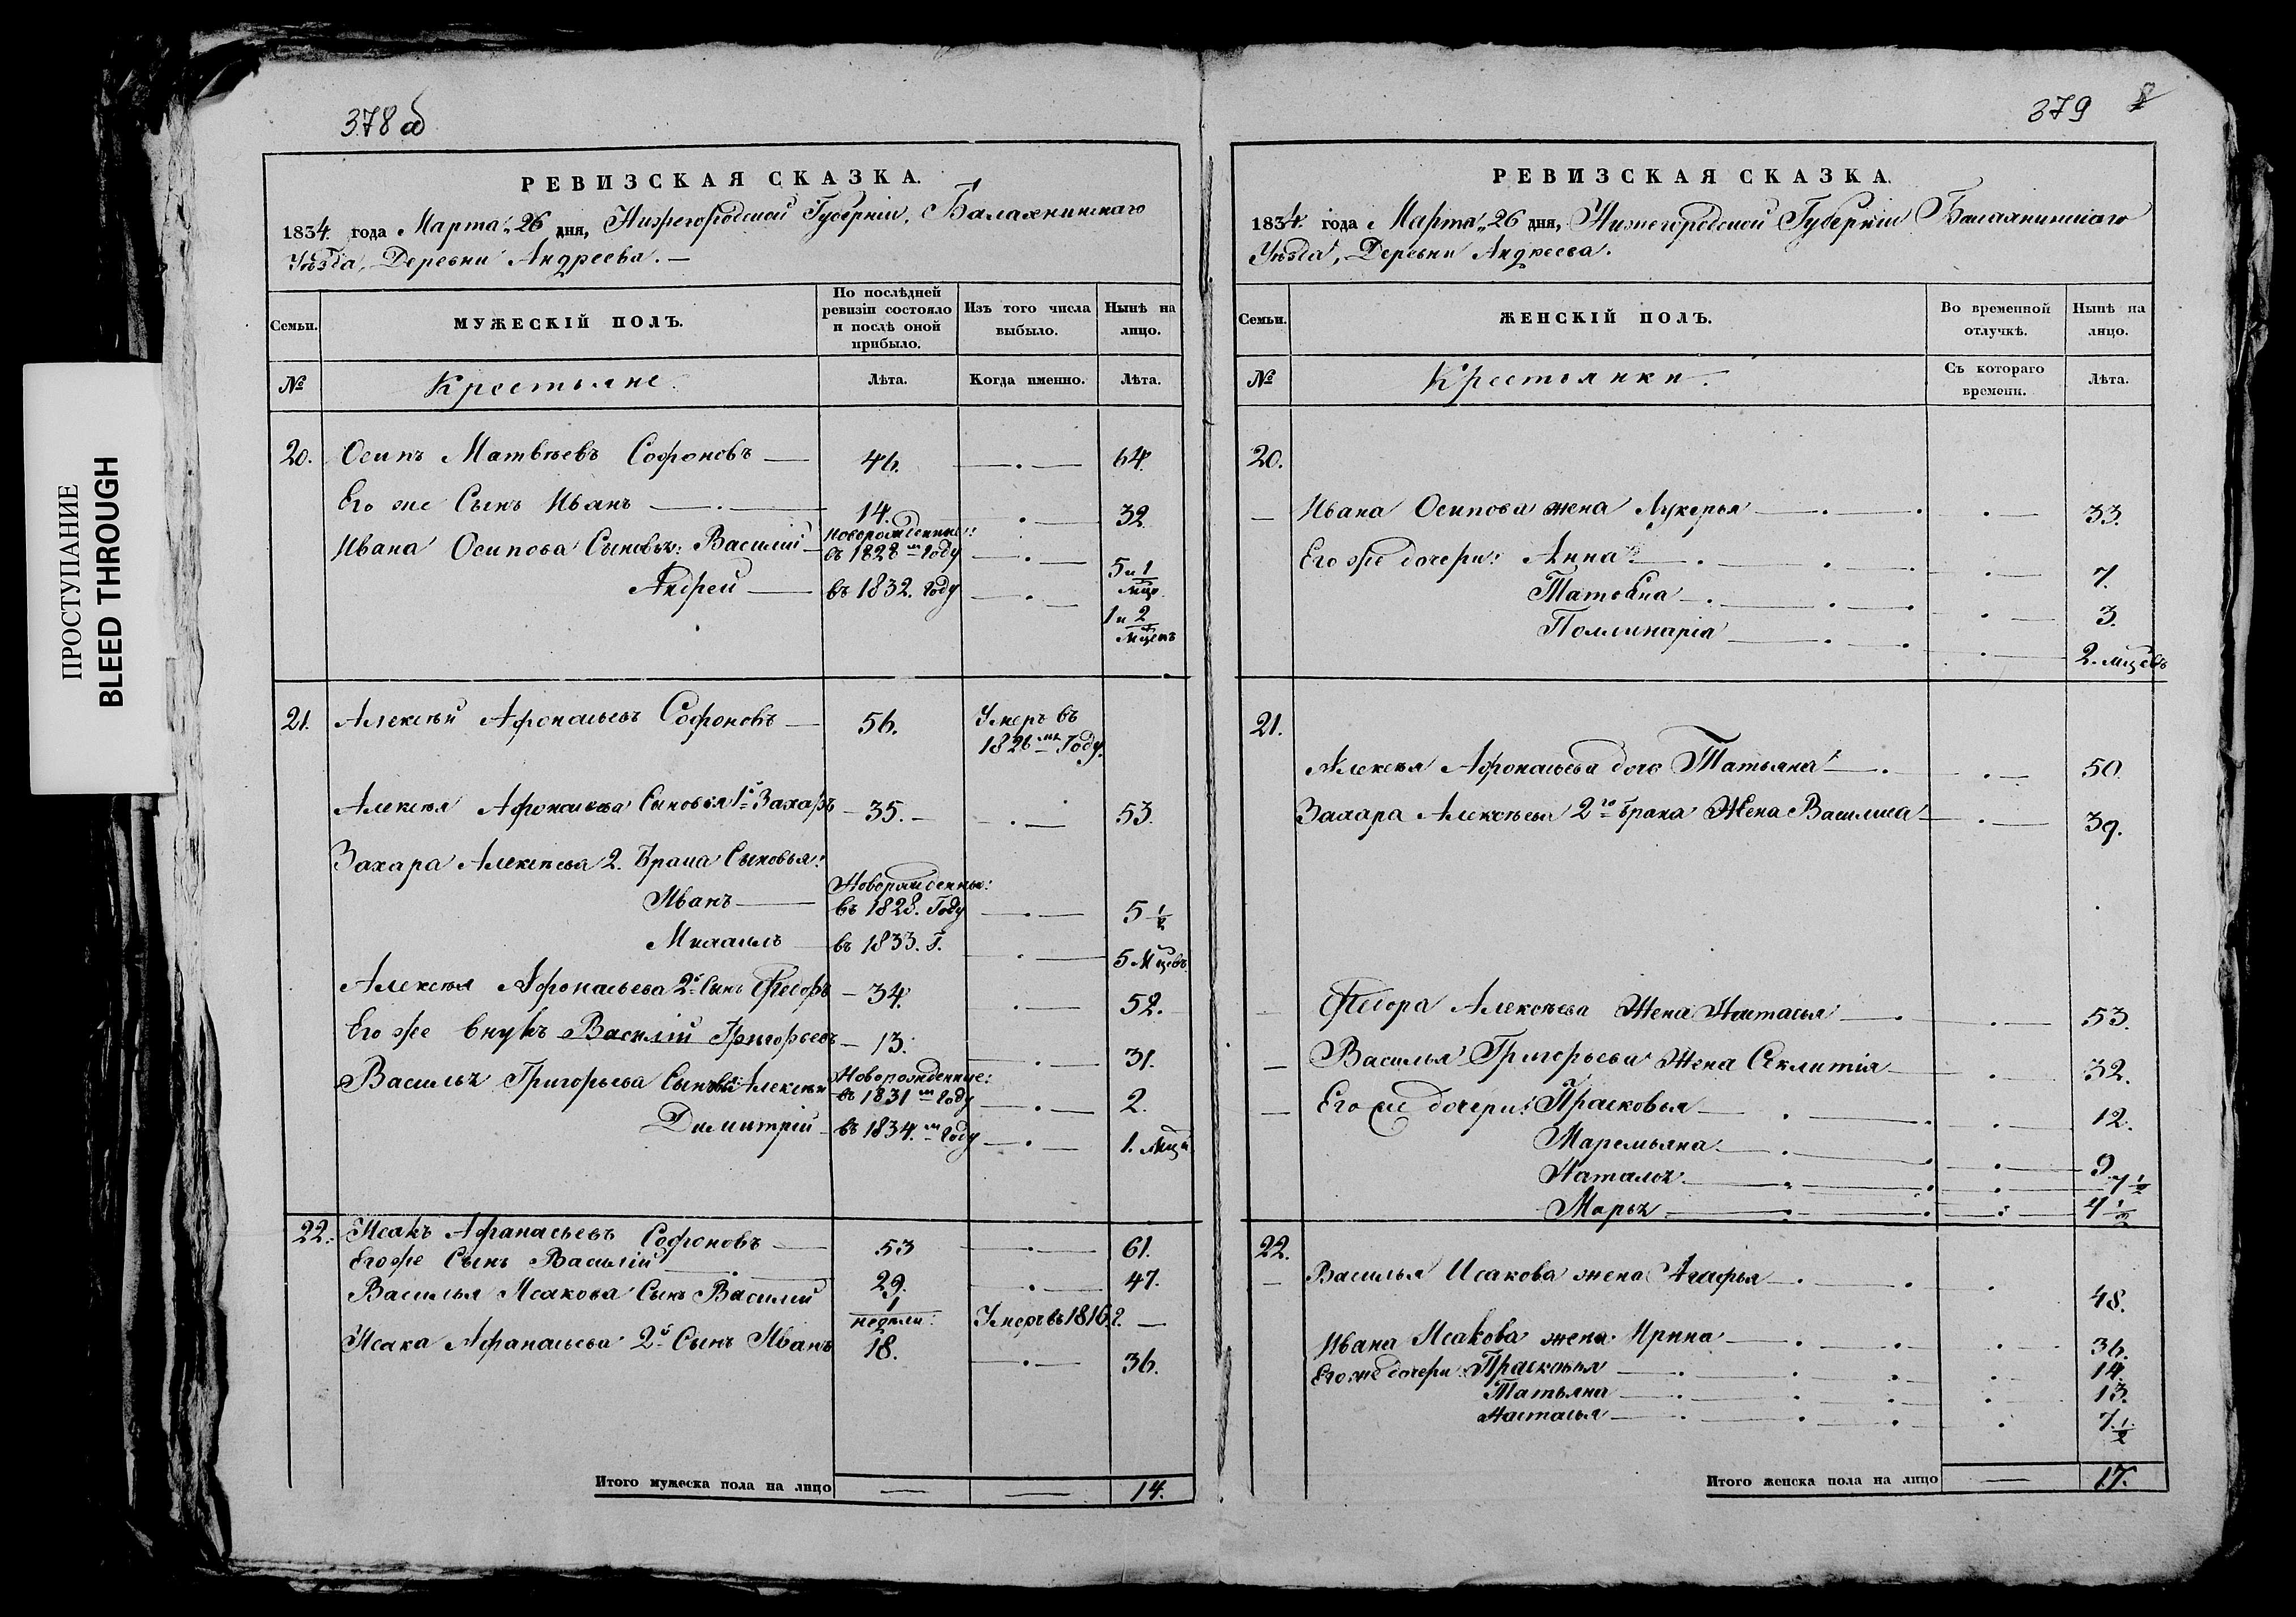 ПРОСТУПАНИЕ
BLEED THROUGH
378 об
РЕВИЗСКАЯ СКАЗКА.
1834. года Марта „26 дня, Нижегородской Губерніи, Балахнинскаго
Уѣзда, Деревни Андреева. —
Семьи.
МУЖЕСКІЙ ПОЛЪ.
По послѣдней ревизіи состояло и послѣ оной прибыло.
Изъ того числа выбыло.
Нынѣ на лицо.
№
Крестьяне.
Лѣта.
Когда именно.
Лѣта.
20. Осипъ Матвѣевъ Софоновъ — 46. — . — 64.
Его же Сынъ Иванъ — . — 14. . — 32.
Новорожденные:
Ивана Осипова Сыновья: Василій — въ 1828 м Году — . — 5 и 1 мцъ.
Андрей — въ 1832. Году — . — 1 и 2 мцевъ
21. Алексѣй Афонасьевъ Софоновъ — 56. Умеръ въ
1826 мъ Году.
Алексѣя Афонасьева Сыновья 1й Захаръ — 35. — . — 53.
Захара Алексѣева 2. Брака Сыновья:
Новорожденные:
Иванъ — въ 1828. Году — . — 5 1/2
Михаилъ — въ 1833. Г. . — 5 Мцевъ
Алексѣя Афонасьева 2й Сынъ Федоръ — 34. . — 52.
Его же внукъ Василій Григорьевъ — 13. — . — 31.
Новорожденные:
Василья Григорьева Сыновья Алексѣй въ 1831 м Году — . — 2.
Димитрій — въ 1834. м Году — . — 1. Мцъ
22. Исакъ Афанасьевъ Софоновъ — 53 — . — 61.
Его же Сынъ Василій — . — 29. — . — 47.
Василья Исакова Сынъ Василій 1 недѣли: Умеръ въ 1816 г. —
Исака Афанасьева 2й Сынъ Иванъ 18. — . — 36.
Итого мужеска пола на лицо — — 14.
379
8
РЕВИЗСКАЯ СКАЗКА.
1834. года Марта „26 дня, Нижегородской Губерніи Балахнинскаго
Уѣзда, Деревни Андреева.
Семьи.
ЖЕНСКІЙ ПОЛЪ.
Во временной отлучкѣ.
Нынѣ на лицо.
№
Крестьянки.
Съ котораго времени.
Лѣта.
20.
— Ивана Осипова жена Лукерья — . — . . — 33.
Его же дочери: Анна — . . — . . — 7.
Татьяна — . . — . . — 3.
Поллинарія — . — . . — 2. мцевъ
21.
Алексѣя Афонасьева дочь Татьяна — . . — 50.
Захара Алексѣева 2го брака Жена Василиса — . — 39.
— Федора Алексѣева Жена Настасья — . . — 53.
— Василья Григорьева Жена Секлитія — . — 32.
— Его же дочери: Прасковья — . — . . — 12.
Маремьяна — . — . . — 9
Наталья — . — . . — 7 1/2
Марья — . — . . — 4 1/2
22.
— Василья Исакова жена Агафья — . . . 48.
Ивана Исакова жена Ирина — . . . — 36.
Его же дочери: Прасковья — . . . — 14.
Татьяна — . . . . — 13.
Настасья — . . . . 7. 1/2
Итого женска пола на лицо — 17.